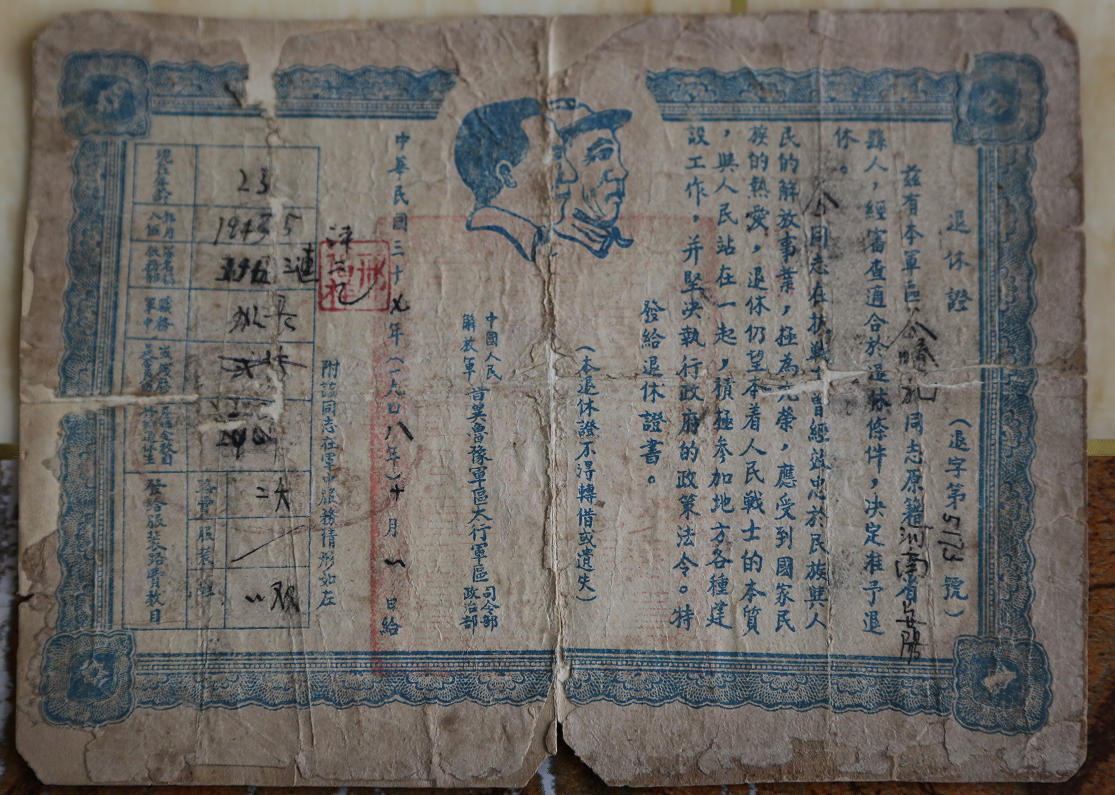 退休證
(退字第5173號)
茲有本軍區 同志原籍河南省安陽
縣人,經審查適合於退休條件,決定准予退
休。
同志在抗戰 曾經效忠於民族與人
民的解放事業,極為光榮,應受到國家民
族的熱愛,退休仍望本着人民戰士的本質
,與人民站在一起,積極參加地方各種建
設工作。并堅决執行政府的政策法令。特
發給退休證書。
(本退休證不得轉借或遺失)
中國人民解放軍 晋冀魯豫軍區太行軍區 司令部 政治部
中華民國三十七年(一九四八年)十月 日給
附註同志在軍中服務情形如左
現在年齡 23
年月入伍 1943 5
三連
軍中職務 班長
發給服裝路費數目
路費
服裝
鞋